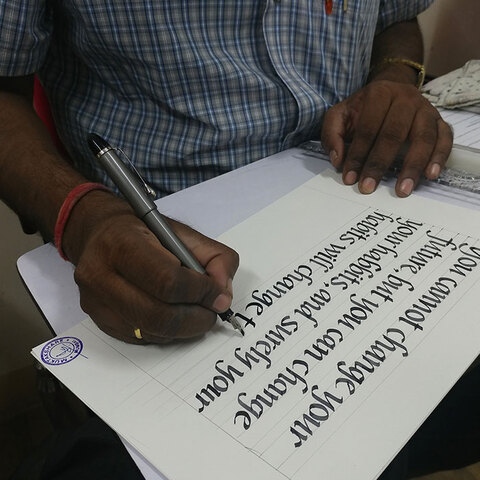 you cannot change your
future, but you can change
your habbits, and surely your
habits will change t